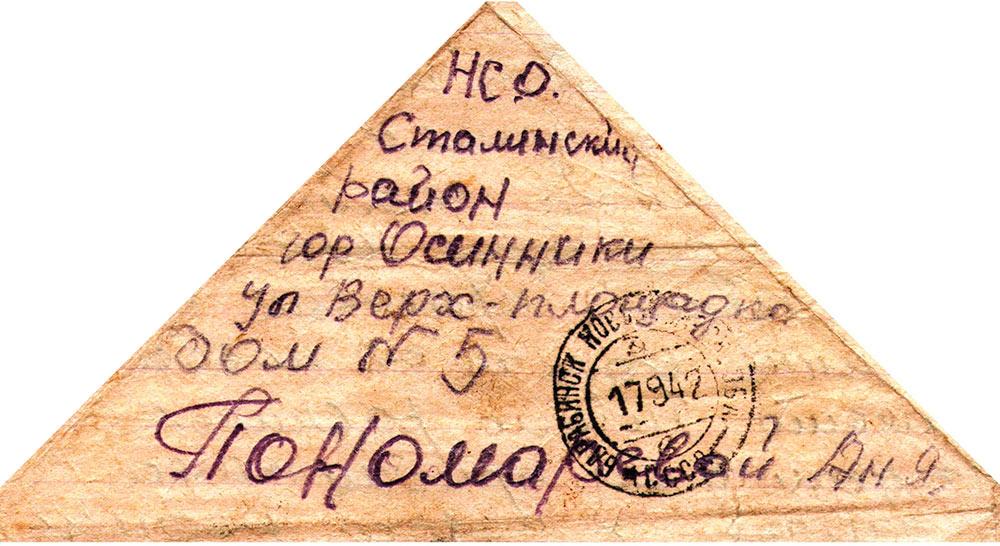 НСО.
Сталинский
район
гор Осинники
ул Верх-площадка
дом N 5
Пономаревой Аня
17 9 42
СССР